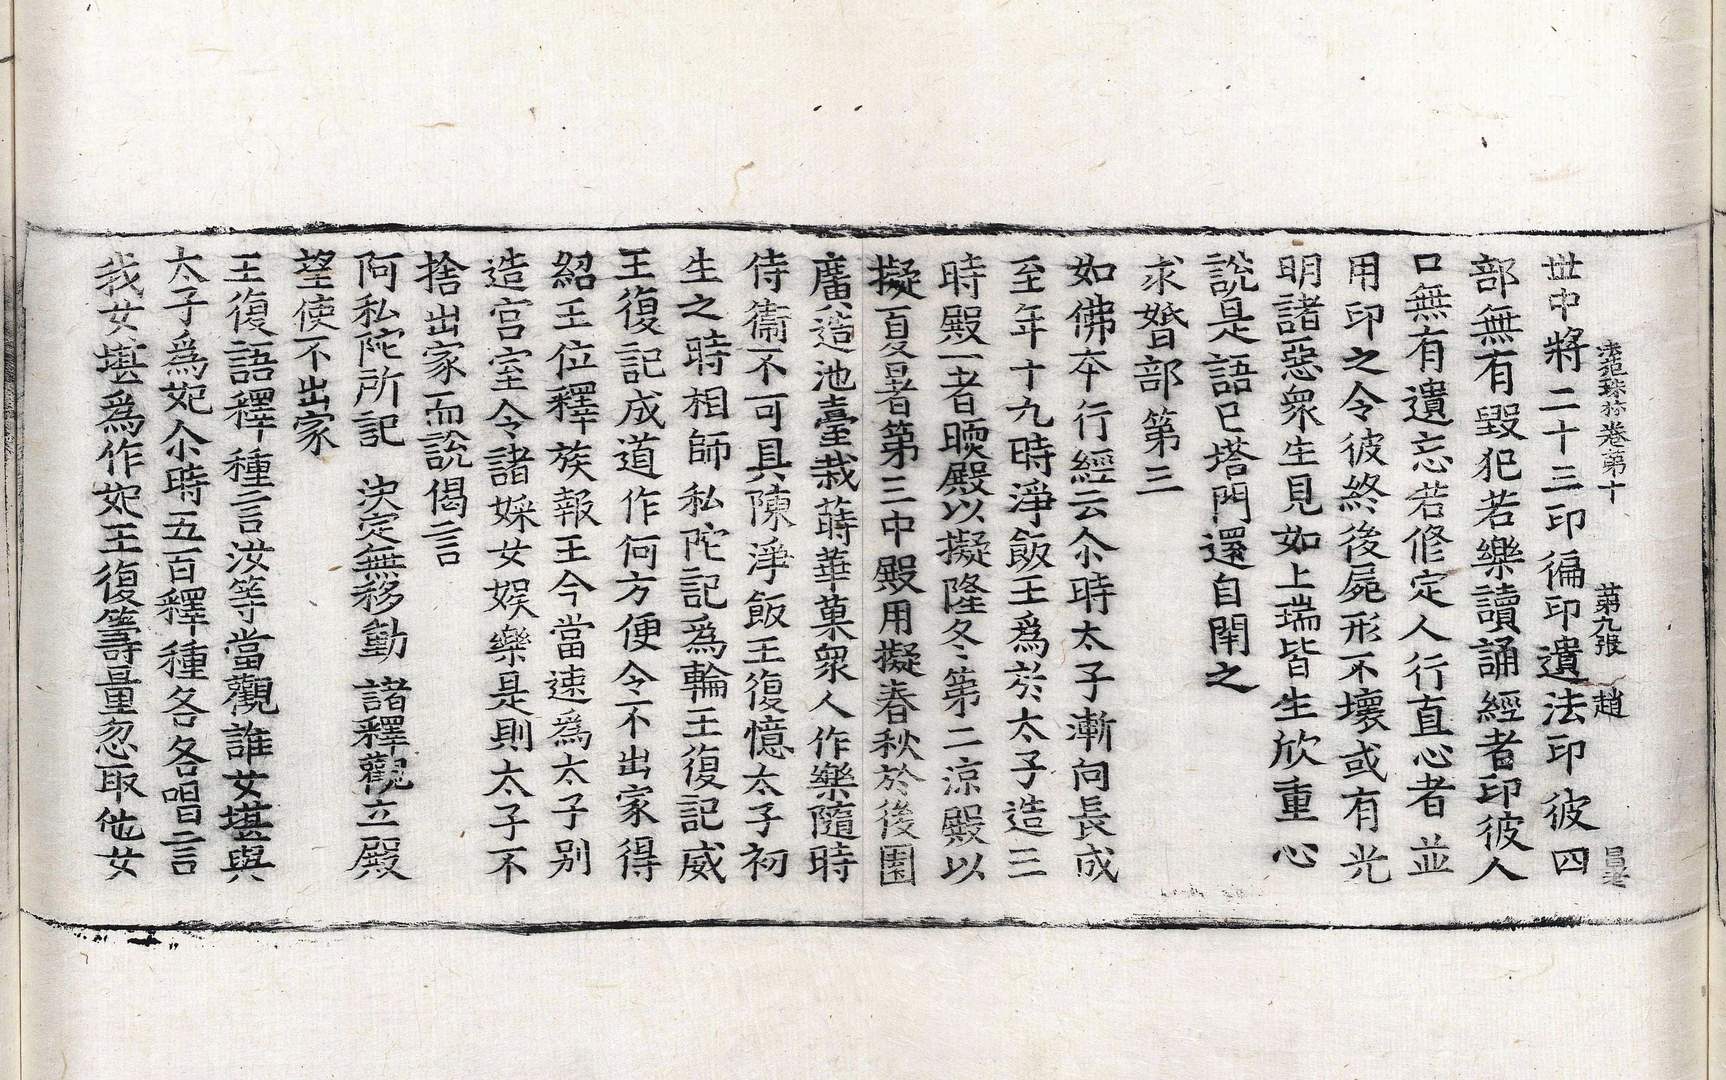 法苑珠林卷第十 第九張 趙 昌老
世中將二十三印徧印遺法印彼四
部無有毀犯若樂讀誦經者印彼人
口無有遺忘若修定人行直心者並
用印之令彼終後屍形不壞或有光
明諸惡衆生見如上瑞皆生欣重心
說是語已塔門還自閉之
求婚部第三
如佛本行經云尒時太子漸向長成
至年十九時淨飯王爲於太子造三
時殿一者暖殿以擬隆冬第二涼殿以
擬夏暑第三中殿用擬春秋於後園
廣造池臺栽蒔華菓衆人作樂隨時
侍衞不可具陳淨飯王復憶太子初
生之時相師私陀記爲輪王復記威
王復記成道作何方便令不出家得
紹王位釋族報王今當速爲太子别
造宫室令諸婇女娛樂是則太子不
捨出家而說偈言
阿私陀所記 决定無移動 諸釋觀立殿
望使不出家
王復語釋種言汝等當觀誰女堪與
太子爲妃尒時五百釋種各各唱言
我女堪爲作妃王復籌量忽取他女